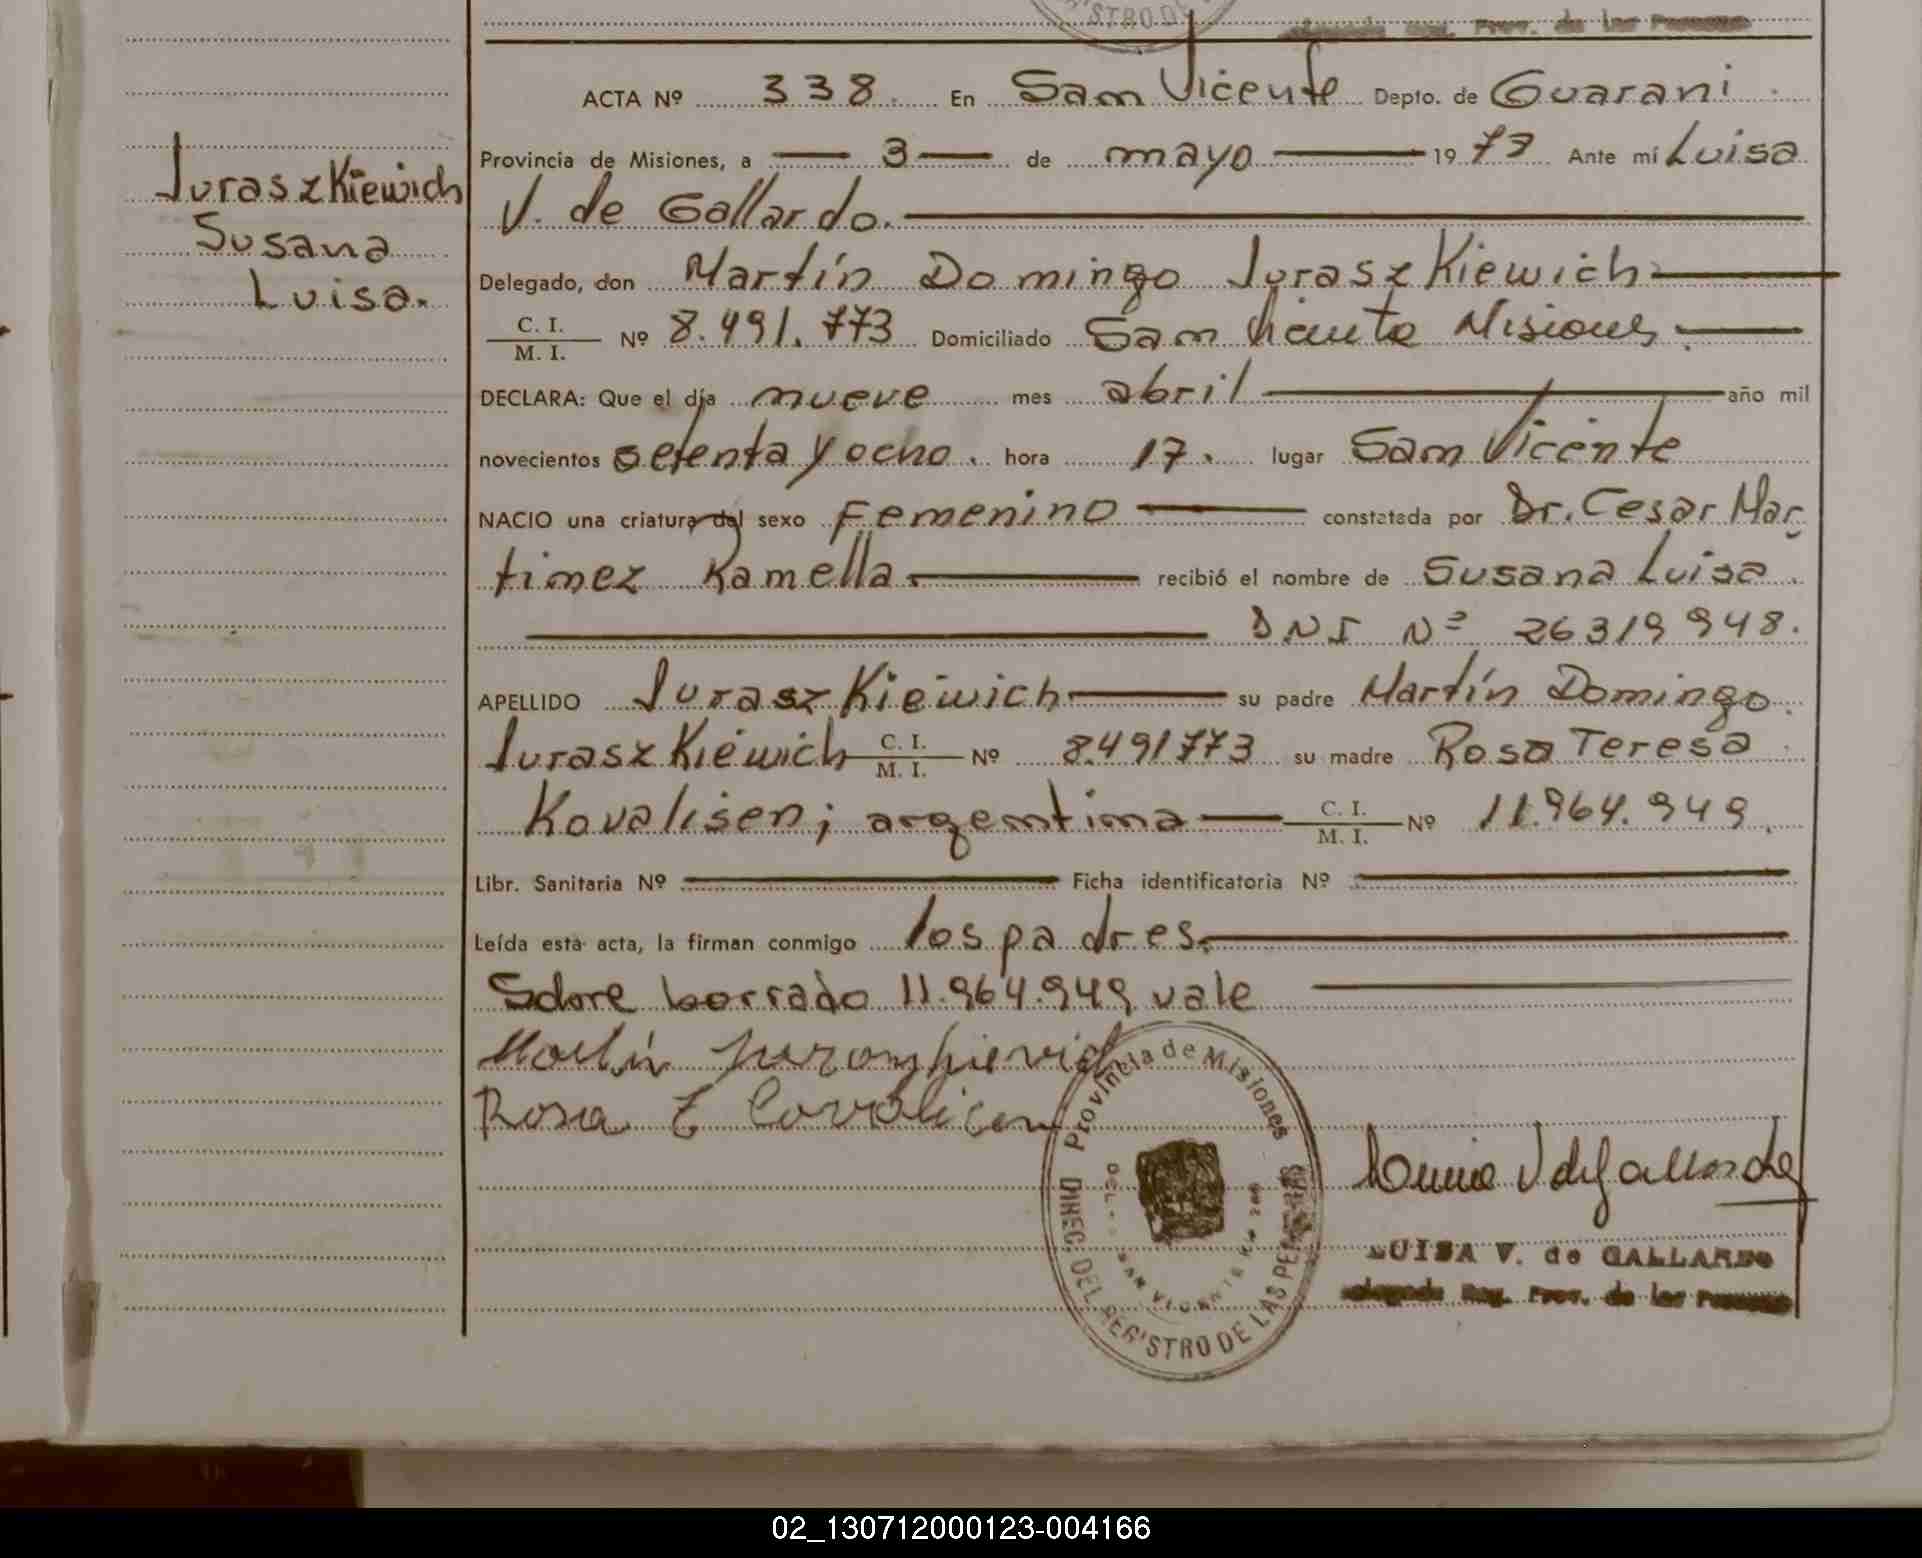 ISTRO D
Reg. Prov. de las Personas
ACTA Nº 338. En San Vicente Depto. de Guarani
Provincia de Misiones, a — 3 — de mayo — 19 77 Ante mí Luisa
V. de Gallardo. —
Juraszkiewich
Susana
Luisa.
Delegado, don Martín Domingo Juraszkiewich —
C. I. / M. I. Nº 8.491.773 Domiciliado San Vicente Misiones. —
DECLARA: Que el día nueve mes abril — año mil
novecientos setenta y ocho. hora 17. lugar San Vicente
NACIO una criatura del sexo Femenino — constatada por Dr. Cesar Mar
tinez Ramella. — recibió el nombre de Susana Luisa.
— DNI Nº 26319948.
APELLIDO Juraszkiewich — su padre Martín Domingo.
Juraszkiewich C. I. / M. I. Nº 8.491773 su madre Rosa Teresa
Kovalisen; argentina — C. I. / M. I. Nº 11.964.949.
Libr. Sanitaria Nº — Ficha identificatoria Nº —
Leída esta acta, la firman conmigo los padres. —
Sobre borrado 11.964.949 vale —
Martín
Rosa T Covalicen
Provincia de Misiones
DIREC. DEL REGISTRO DE LAS PERSONAS
SAN VICENTE
Luisa V de Gallardo
LUISA V. de GALLARDO
Delegada Reg. Prov. de las Personas
02_130712000123-004166